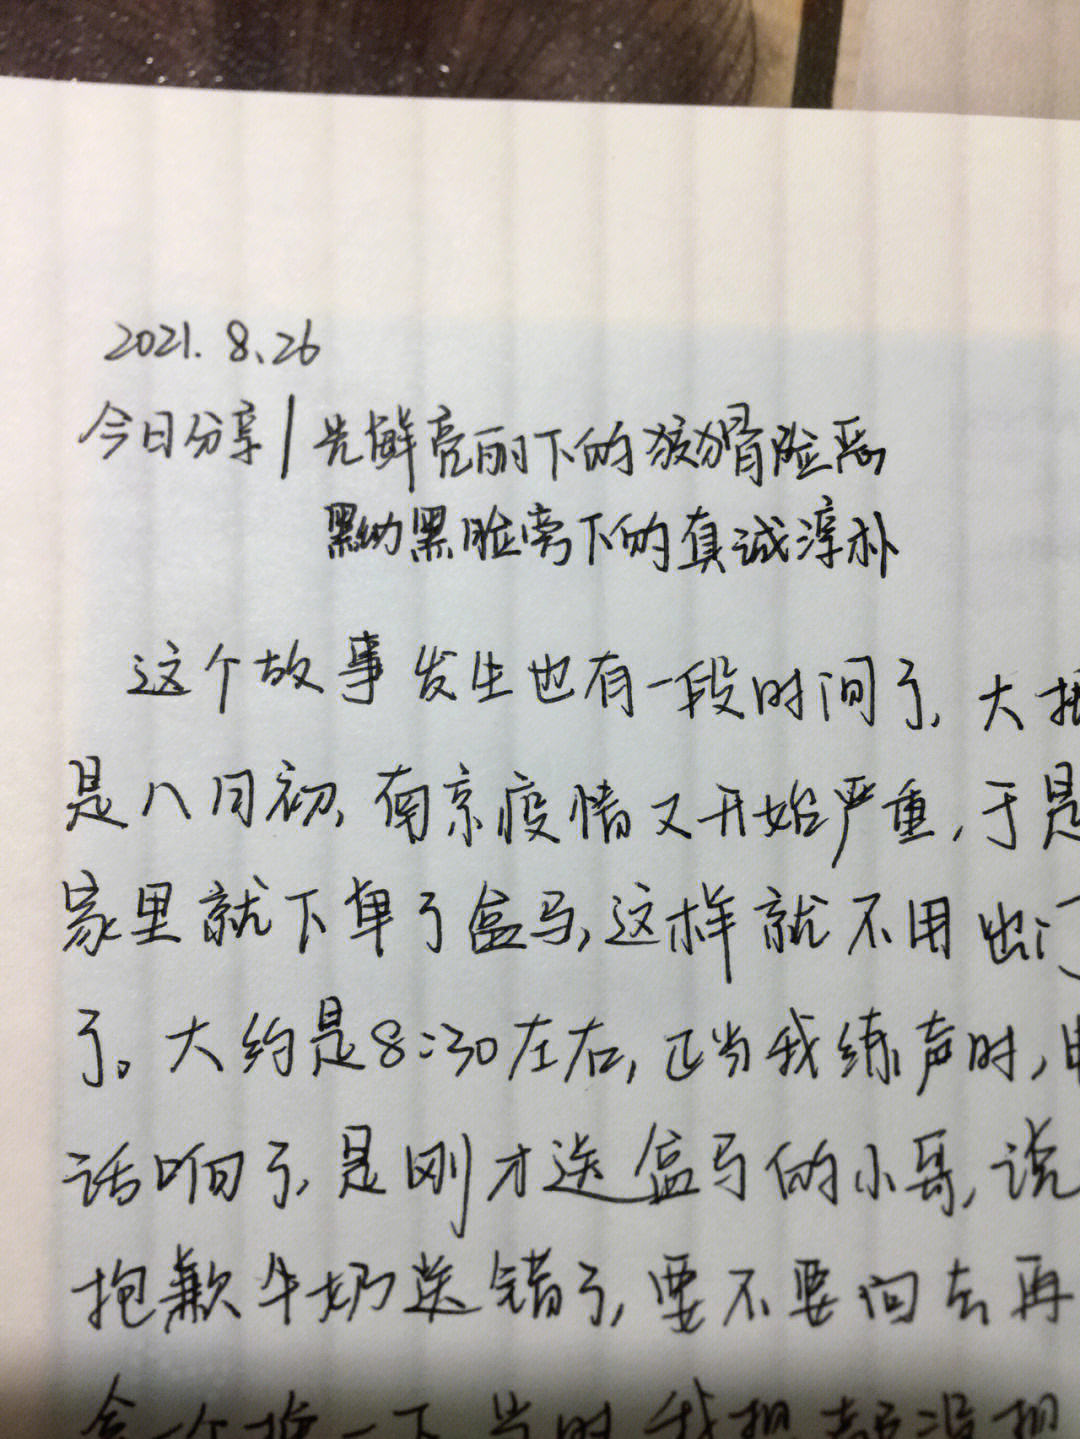 2021.8.26
今日分享|光鲜亮丽下的狡猾险恶
黑黝黑脸旁下的真诚淳朴
这个故事发生也有一段时间了,大概
是八月初,南京疫情又开始严重,于是
家里就下单了盒马,这样就不用出门
了。大约是8:30左右,正当我练声时,电
话响了,是刚才送盒马的小哥,说
抱歉牛奶送错了,要不要回去再
拿一个换一下 当时我想都没想